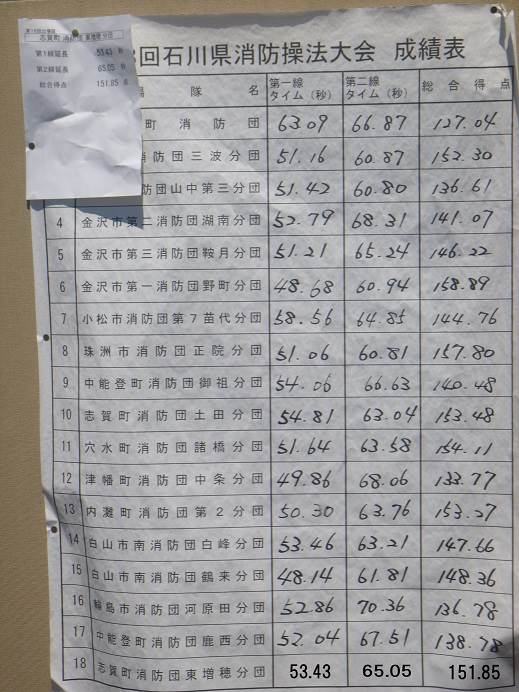 志賀町 消防団 東増穂 分団
第1線延長 53.43 秒
第2線延長 65.05 秒
総合得点 151.85 点
回石川県消防操法大会 成績表
隊 名 第一線タイム(秒) 第二線タイム(秒) 総合得点
町消防団 63.09 66.87 127.04
消防団三波分団 51.16 60.87 152.30
防団山中第三分団 51.42 60.80 136.61
4 金沢市第二消防団湖南分団 52.79 68.31 141.07
5 金沢市第三消防団鞍月分団 51.21 65.24 146.22
6 金沢市第一消防団野町分団 48.68 60.94 158.89
7 小松市消防団第7苗代分団 58.56 64.85 144.76
8 珠洲市消防団正院分団 51.06 60.81 157.80
9 中能登町消防団御祖分団 54.06 66.63 140.48
10 志賀町消防団土田分団 54.81 63.04 153.48
11 穴水町消防団諸橋分団 51.64 63.58 154.11
12 津幡町消防団中条分団 49.86 68.06 133.77
13 内灘町消防団第2分団 50.30 63.76 153.27
14 白山市南消防団白峰分団 53.46 63.21 147.66
15 白山市南消防団鶴来分団 48.14 61.81 148.36
16 輪島市消防団河原田分団 52.86 70.36 136.78
17 中能登町消防団鹿西分団 52.04 67.51 138.78
18 志賀町消防団東増穂分団 53.43 65.05 151.85